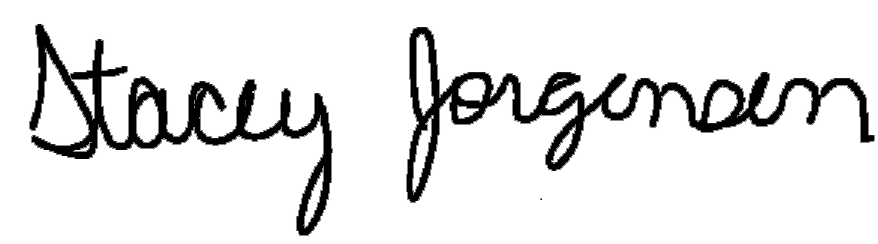 Stacey Jorgensen